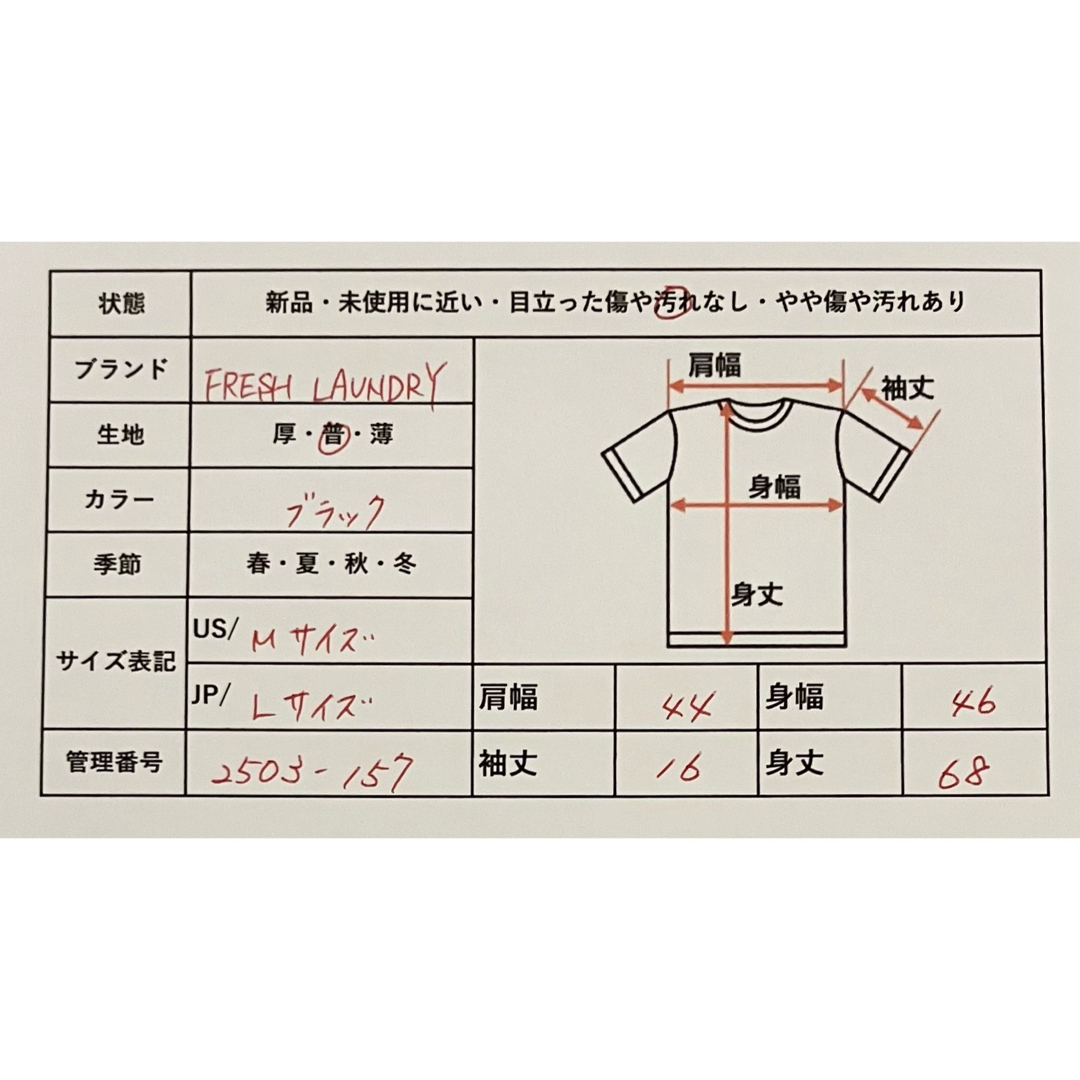 状態 新品・未使用に近い・目立った傷や汚れなし・やや傷や汚れあり
ブランド FRESH LAUNDRY
生地 厚・普・薄
カラー ブラック
季節 春・夏・秋・冬
サイズ表記 US/ Mサイズ
JP/ Lサイズ
管理番号 2503-157
肩幅
袖丈
身幅
身丈
肩幅 44 身幅 46
袖丈 16 身丈 68